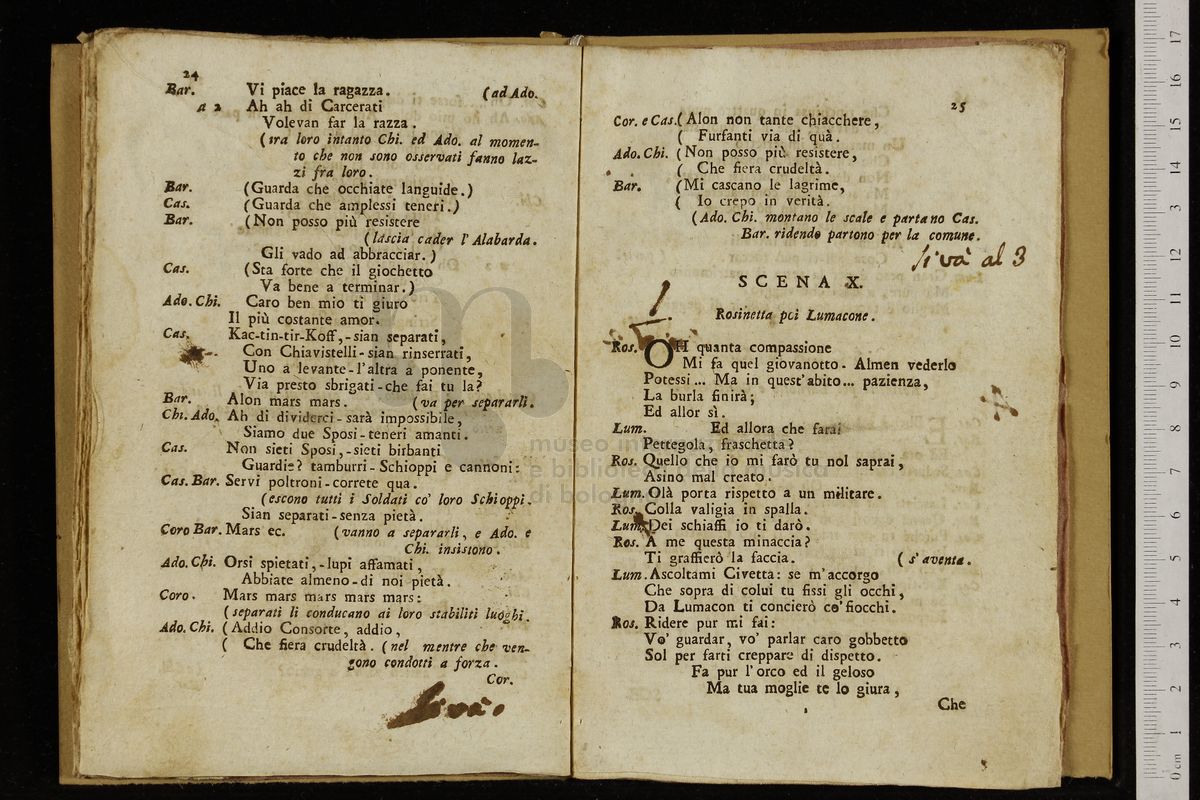 24
Bar. Vi piace la ragazza. (ad Ado.
a 2 Ah ah di Carcerati
Volevan far la razza.
(tra loro intanto Chi. ed Ado. al momen-
to che non sono osservati fanno laz-
zi fra loro.
Bar. (Guarda che occhiate languide.)
Cas. (Guarda che amplessi teneri.)
Bar. (Non posso più resistere
(lascia cader l'Alabarda.
Gli vado ad abbracciar.)
Cas. (Sta forte che il giochetto
Va bene a terminar.)
Ado. Chi. Caro ben mio ti giuro
Il più costante amor.
Cas. Kac-tin-tir-Koff,-sian separati,
Con Chiavistelli-sian rinserrati,
Uno a levante-l'altra a ponente,
Via presto sbrigati-che fai tu la?
Bar. Alon mars mars. (va per separarli.
Chi. Ado. Ah di dividerci-sarà impossibile,
Siamo due Sposi-teneri amanti.
Cas. Non sieti Sposi,-sieti birbanti
Guardie? tamburri-Schioppi e cannoni:
Cas. Bar. Servi poltroni-correte qua.
(escono tutti i Soldati co' loro Schioppi.
Sian separati-senza pietà.
Coro Bar. Mars ec. (vanno a separarli, e Ado. e
Chi. insistono.
Ado. Chi. Orsi spietati,-lupi affamati,
Abbiate almeno-di noi pietà.
Coro. Mars mars mars mars mars:
(separati li conducano ai loro stabiliti luoghi.
Ado. Chi. (Addio Consorte, addio,
( Che fiera crudeltà. (nel mentre che ven-
gono condotti a forza.
Cor.
si và
25
Cor. e Cas. (Alon non tante chiacchere,
( Furfanti via di quà.
Ado. Chi. (Non posso più resistere,
( Che fiera crudeltà.
Bar. (Mi cascano le lagrime,
( Io crepo in verità.
(Ado. Chi. montano le scale e partano Cas.
Bar. ridendo partono per la comune.
si và al 3
SCENA X.
Rosinetta poi Lumacone.
Ros. OH quanta compassione
Mi fa quel giovanotto. Almen vederlo
Potessi... Ma in quest'abito... pazienza,
La burla finirà;
Ed allor sì.
Lum. Ed allora che farai
Pettegola, fraschetta?
Ros. Quello che io mi farò tu nol saprai,
Asino mal creato.
Lum. Olà porta rispetto a un militare.
Ros. Colla valigia in spalla.
Lum. Dei schiaffi io ti darò.
Ros. A me questa minaccia?
Ti graffierò la faccia. (s'aventa.
Lum. Ascoltami Civetta: se m'accorgo
Che sopra di colui tu fissi gli occhi,
Da Lumacon ti concierò co' fiocchi.
Ros. Ridere pur mi fai:
Vo' guardar, vo' parlar caro gobbetto
Sol per farti creppare di dispetto.
Fa pur l'orco ed il geloso
Ma tua moglie te lo giura,
Che